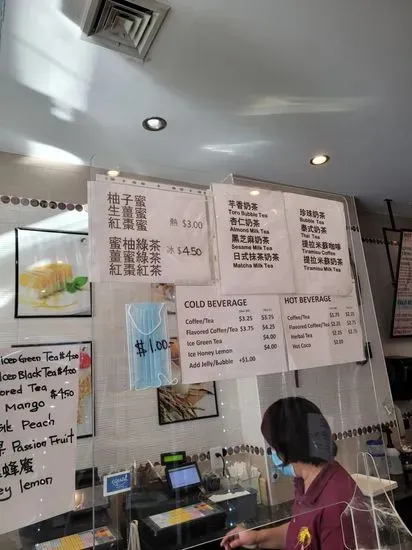 柚子蜜
生薑蜜
紅棗蜜
熱 $3.00
蜜柚綠茶
薑蜜綠茶
紅棗紅茶
冰 $4.50
芋香奶茶
Toro Bubble Tea
杏仁奶茶
Almond Milk Tea
黑芝麻奶茶
Sesame Milk Tea
日式抹茶奶茶
Matcha Milk Tea
珍珠奶茶
Bubble Tea
泰式奶茶
Thai Tea
提拉米蘇咖啡
Tiramisu Coffee
提拉米蘇奶茶
Tiramisu Milk Tea
COLD BEVERAGE
Coffee/Tea $3.25 $3.75
Flavored Coffee/Tea $3.75 $4.25
Ice Green Tea $4.00
Ice Honey Lemon $4.00
Add Jelly/Bubble +$1.00
HOT BEVERAGE
Coffee/Tea
Flavored Coffee/Tea
Herbal Tea
Hot Coco
$1.00
iced Green Tea $4.00
iced Black Tea $4.00
ored Tea
Mango $4.50
Peach
Passion Fruit
蜂蜜
ey lemon